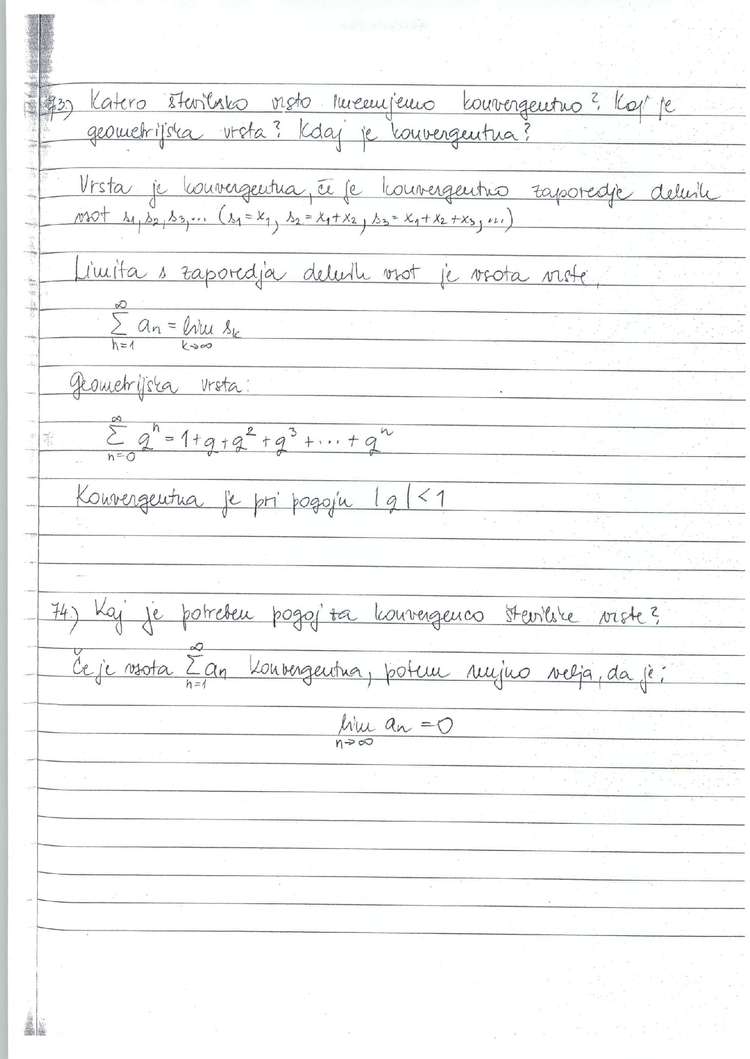 73) Katero številsko vrsto imenujemo konvergentno? Kaj je
geometrijska vrsta? Kdaj je konvergentna?
Vrsta je konvergentna, če je konvergentno zaporedje delnih
vsot s₁, s₂, s₃, ... (s₁ = x₁, s₂ = x₁ + x₂, s₃ = x₁ + x₂ + x₃, ...)
Limita s zaporedja delnih vsot je vsota vrste.
∑_{n=1}^{∞} aₙ = lim_{k→∞} sₖ
Geometrijska vrsta:
∑_{n=0}^{∞} qⁿ = 1 + q + q² + q³ + ... + qⁿ
Konvergentna je pri pogoju |q| < 1
74) Kaj je potreben pogoj za konvergenco številske vrste?
Če je vsota ∑_{n=1}^{∞} aₙ konvergentna, potem nujno velja, da je:
lim_{n→∞} aₙ = 0